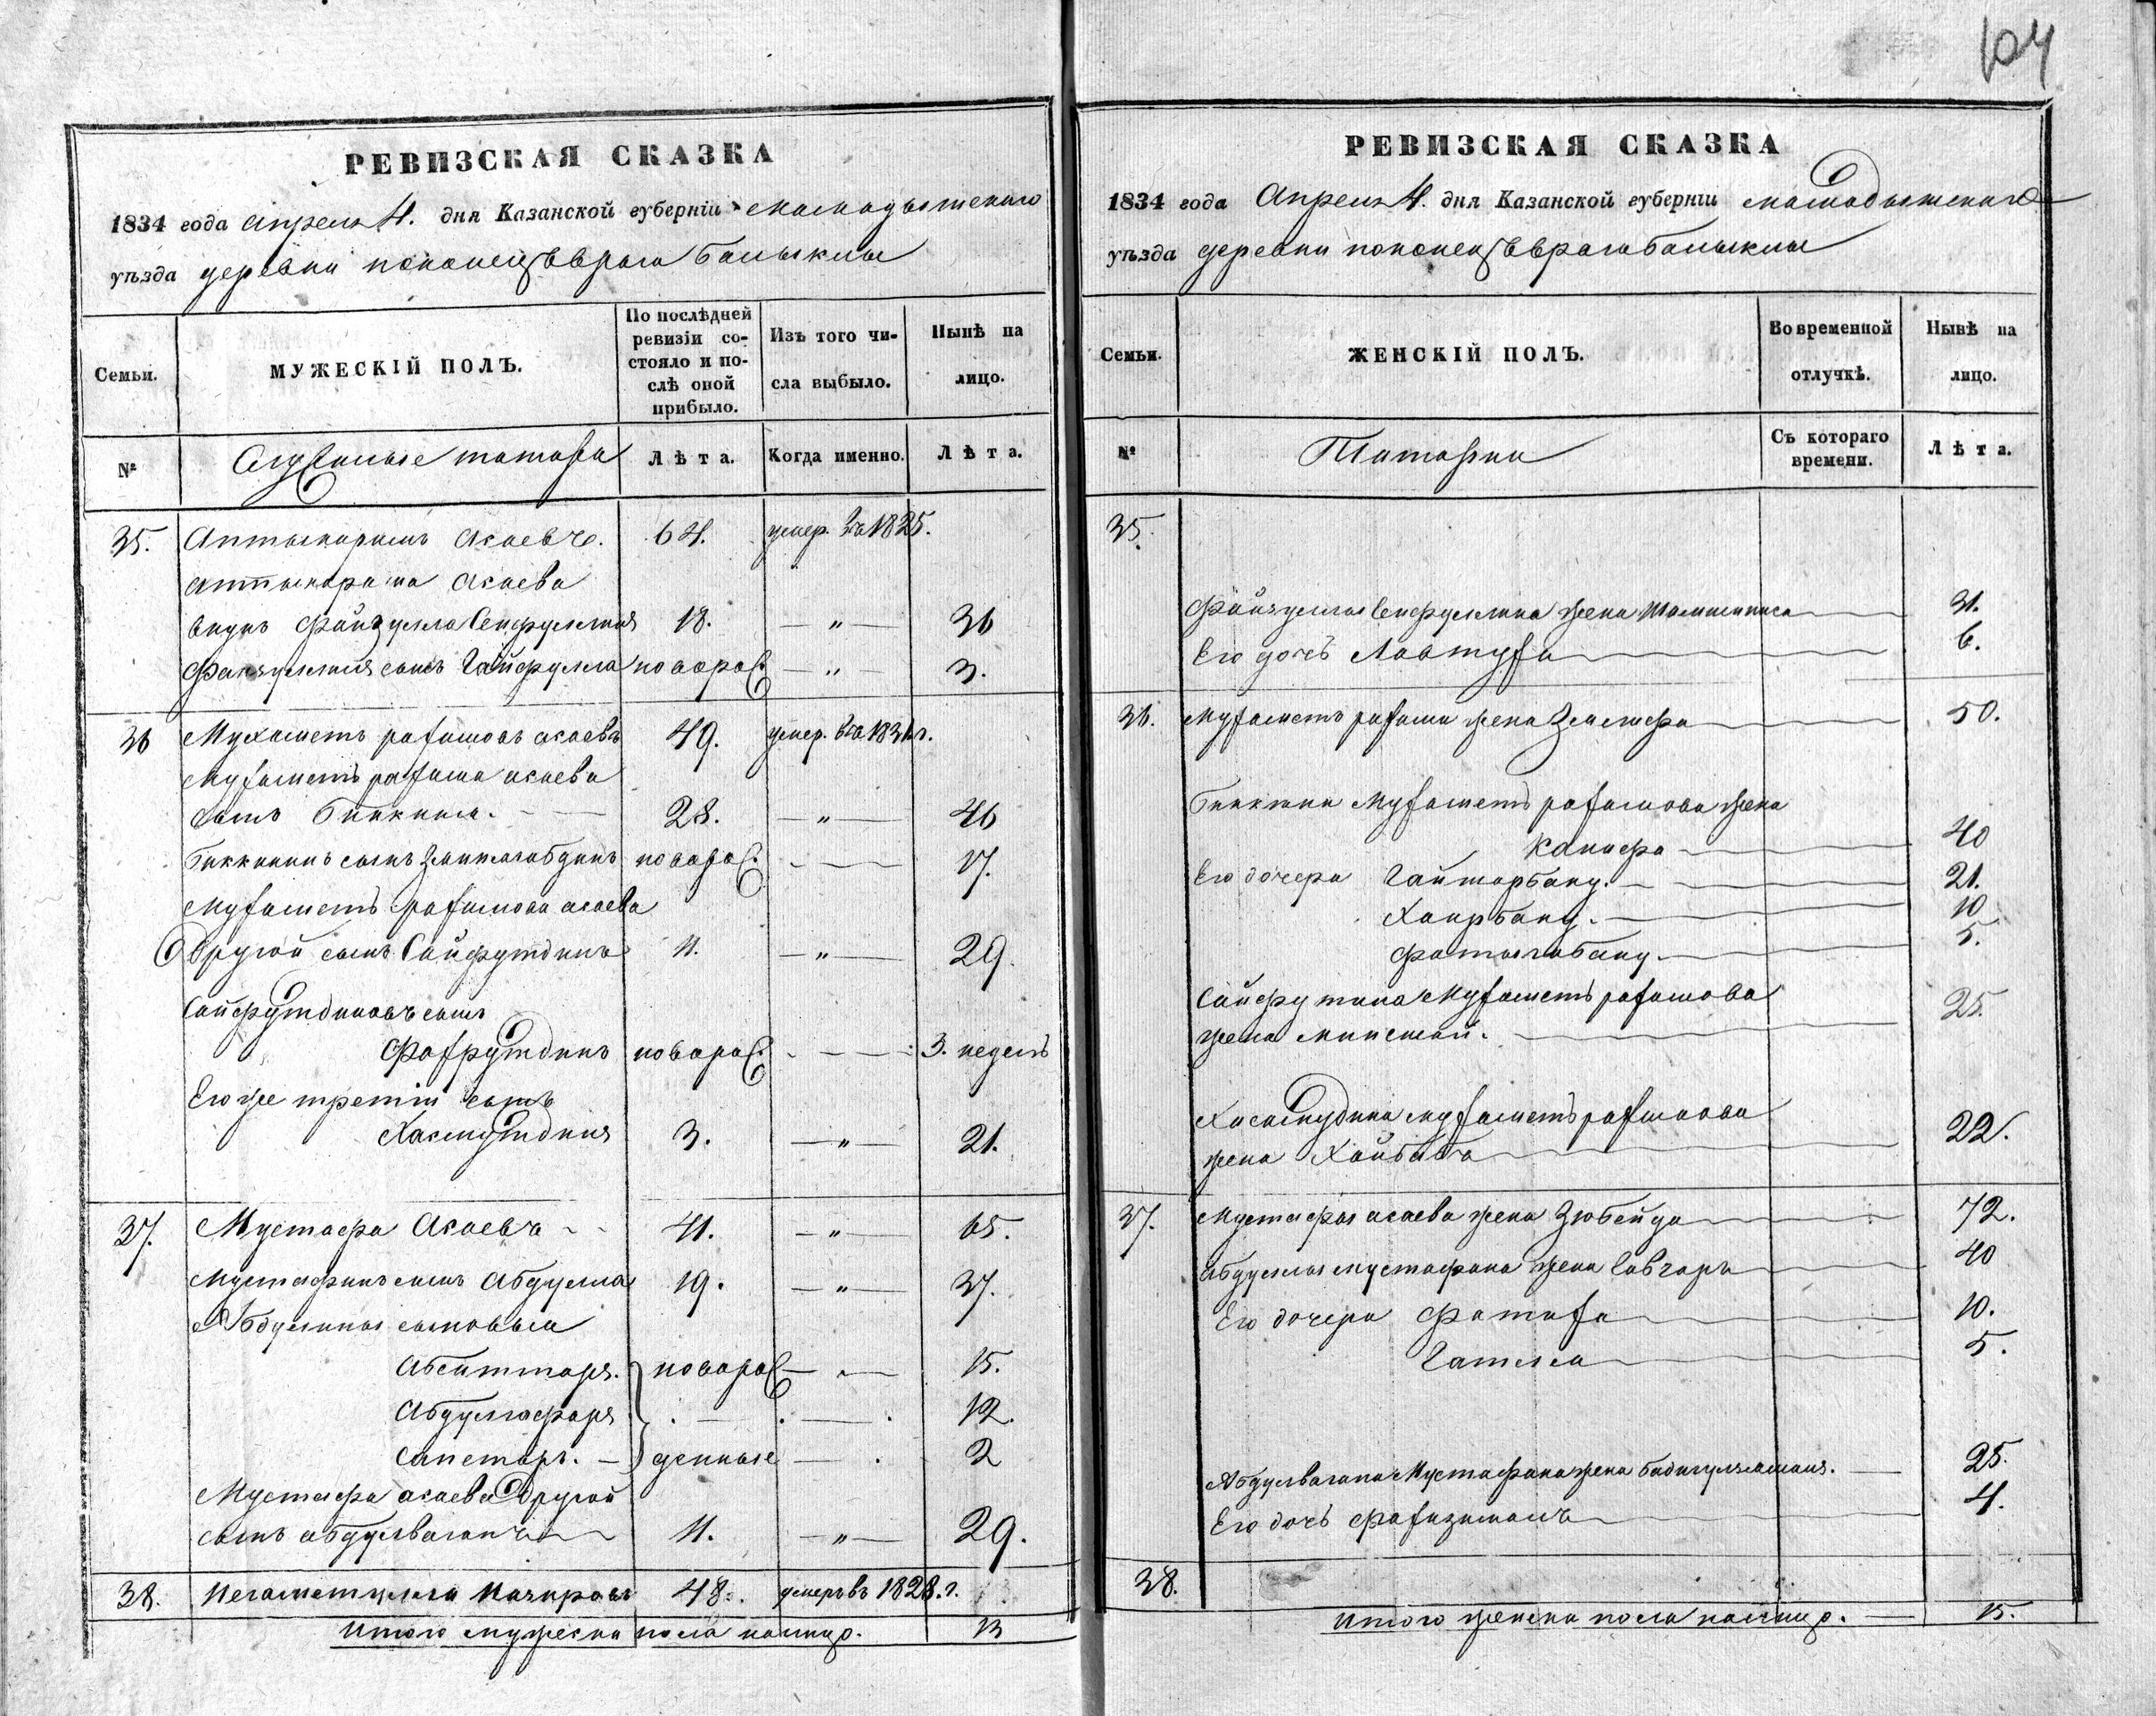 104
РЕВИЗСКАЯ СКАЗКА
1834 года Апреля 4. дня Казанской губерніи мамадышскаго
уѣзда деревни поконецъ врага Балыклы
Семьи.
МУЖЕСКІЙ ПОЛЪ.
По послѣдней ревизіи состояло и послѣ оной прибыло.
Изъ того числа выбыло.
Нынѣ на лицо.
№
татары
Лѣта.
Когда именно.
Лѣта.
35. Аптыкарымъ Акаевъ. 64. умер. въ 1825.
Аптыкарыма Акаева
внукъ Файзулла Сейфуллинъ 18. — " — 36
Файзуллинъ сынъ Гайфулла новорож. — " — 3.
36 Мухаметъ рахимовъ акаевъ 49. умер. въ 1831 г.
Мухаметъ рахима акаева
сынъ Биккина. 28. — " — 46
Биккининъ сынъ Зейнагабдинъ новорож. — 17.
Мухаметъ рахимова акаева
Другой сынъ Сайфутдинъ 11. — " — 29.
Сайфутдиновъ сынъ
Фахрутдинъ новорож. — 3. недель
Его же третій сынъ
Хисмутдинъ 3. — " — 21.
37. Мустафа Акаевъ 41. — " — 65.
Мустафинъ сынъ Абдулла 19. — " — 37.
Абдуллины сыновья
Абситтаръ. новорож — 15.
Абдулгафаръ — 12.
Сапетаръ. — денные — 2
Мустафы акаева Другой
сынъ абдулвагапъ 11. — " — 29.
38. Негаметулла Назировъ 48. умеръ въ 1828. г.
Итого мужеска пола налицо. 13
РЕВИЗСКАЯ СКАЗКА
1834 года Апреля 4. дня Казанской губерніи мамадышскаго
уѣзда деревни поконецъ врага Балыклы
Семьи.
ЖЕНСКІЙ ПОЛЪ.
Во временной отлучкѣ.
Нынѣ на лицо.
№
Татарки
Съ котораго времени.
Лѣта.
35.
Файзуллы Сейфуллина жена 31.
Его дочь Лавтуфа 6.
36. Мухаметъ рахима жена 50.
Биккини Мухаметъ рахимова жена
Канифа 40
Его дочери Гайнарбану. 21.
Хаирбану. 10
Фатыхабану. 5.
Сайфутина Мухаметъ рахимова
жена 25.
Хисамудина мухаметъ рахимова
жена Хайбиба 22.
37. Мустафы акаева жена Зюбейда 72.
Абдуллы мустафина жена Гавгаръ 40
Его дочери Фатиха 10.
5.
Абдулвагапа Мустафина жена Бадигулзямаля. 25.
Его дочь Фахизямалъ 4.
38.
Итого женска пола налицо. 15.